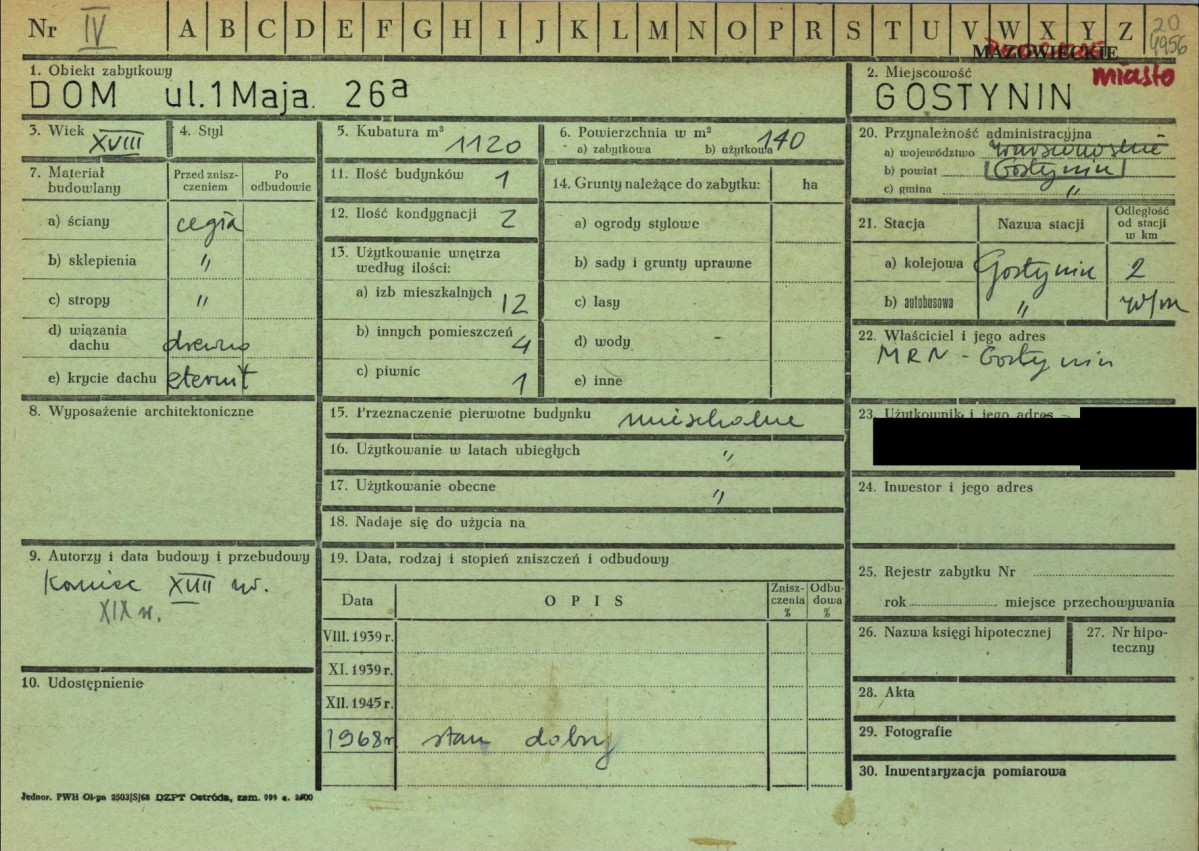 Nr IV A B C D E F G H I J K L M N O P R S T U V W X Y Z 20
4956
MAZOWIECKIE
miasto
1. Obiekt zabytkowy
DOM ul. 1 Maja. 26a
2. Miejscowość
GOSTYNIN
3. Wiek XVIII
4. Styl
5. Kubatura m³ 1120
6. Powierzchnia w m²
a) zabytkowa b) użytkowa 140
7. Materiał budowlany
Przed zniszczeniem
Po odbudowie
a) ściany cegła
b) sklepienia "
c) stropy "
d) wiązania dachu drewno
e) krycie dachu eternit
8. Wyposażenie architektoniczne
9. Autorzy i data budowy i przebudowy
Koniec XVIII w.
XIX w.
10. Udostępnienie
11. Ilość budynków 1
12. Ilość kondygnacji 2
13. Użytkowanie wnętrza
według ilości:
a) izb mieszkalnych 12
b) innych pomieszczeń 4
c) piwnic 1
14. Grunty należące do zabytku: ha
a) ogrody stylowe
b) sady i grunty uprawne
c) lasy
d) wody -
e) inne
15. Przeznaczenie pierwotne budynku mieszkalne
16. Użytkowanie w latach ubiegłych "
17. Użytkowanie obecne "
18. Nadaje się do użycia na
19. Data, rodzaj i stopień zniszczeń i odbudowy
Data OPIS Zniszczenia % Odbudowa %
VIII. 1939 r.
XI. 1939 r.
XII. 1945 r.
1968 r stan dobry
20. Przynależność administracyjna
a) województwo warszawskie
b) powiat Gostynin
c) gmina "
21. Stacja Nazwa stacji Odległość od stacji w km
a) kolejowa Gostynin 2
b) autobusowa " w/m
22. Właściciel i jego adres
MRN - Gostynin
23. Użytkownik i jego adres -
24. Inwestor i jego adres
25. Rejestr zabytku Nr
rok miejsce przechowywania
26. Nazwa księgi hipotecznej
27. Nr hipoteczny
28. Akta
29. Fotografie
30. Inwentaryzacja pomiarowa
Jednor. PWH Ol-yn 2503/S/68 DZPT Ostróda, zam. 999 e. 2800